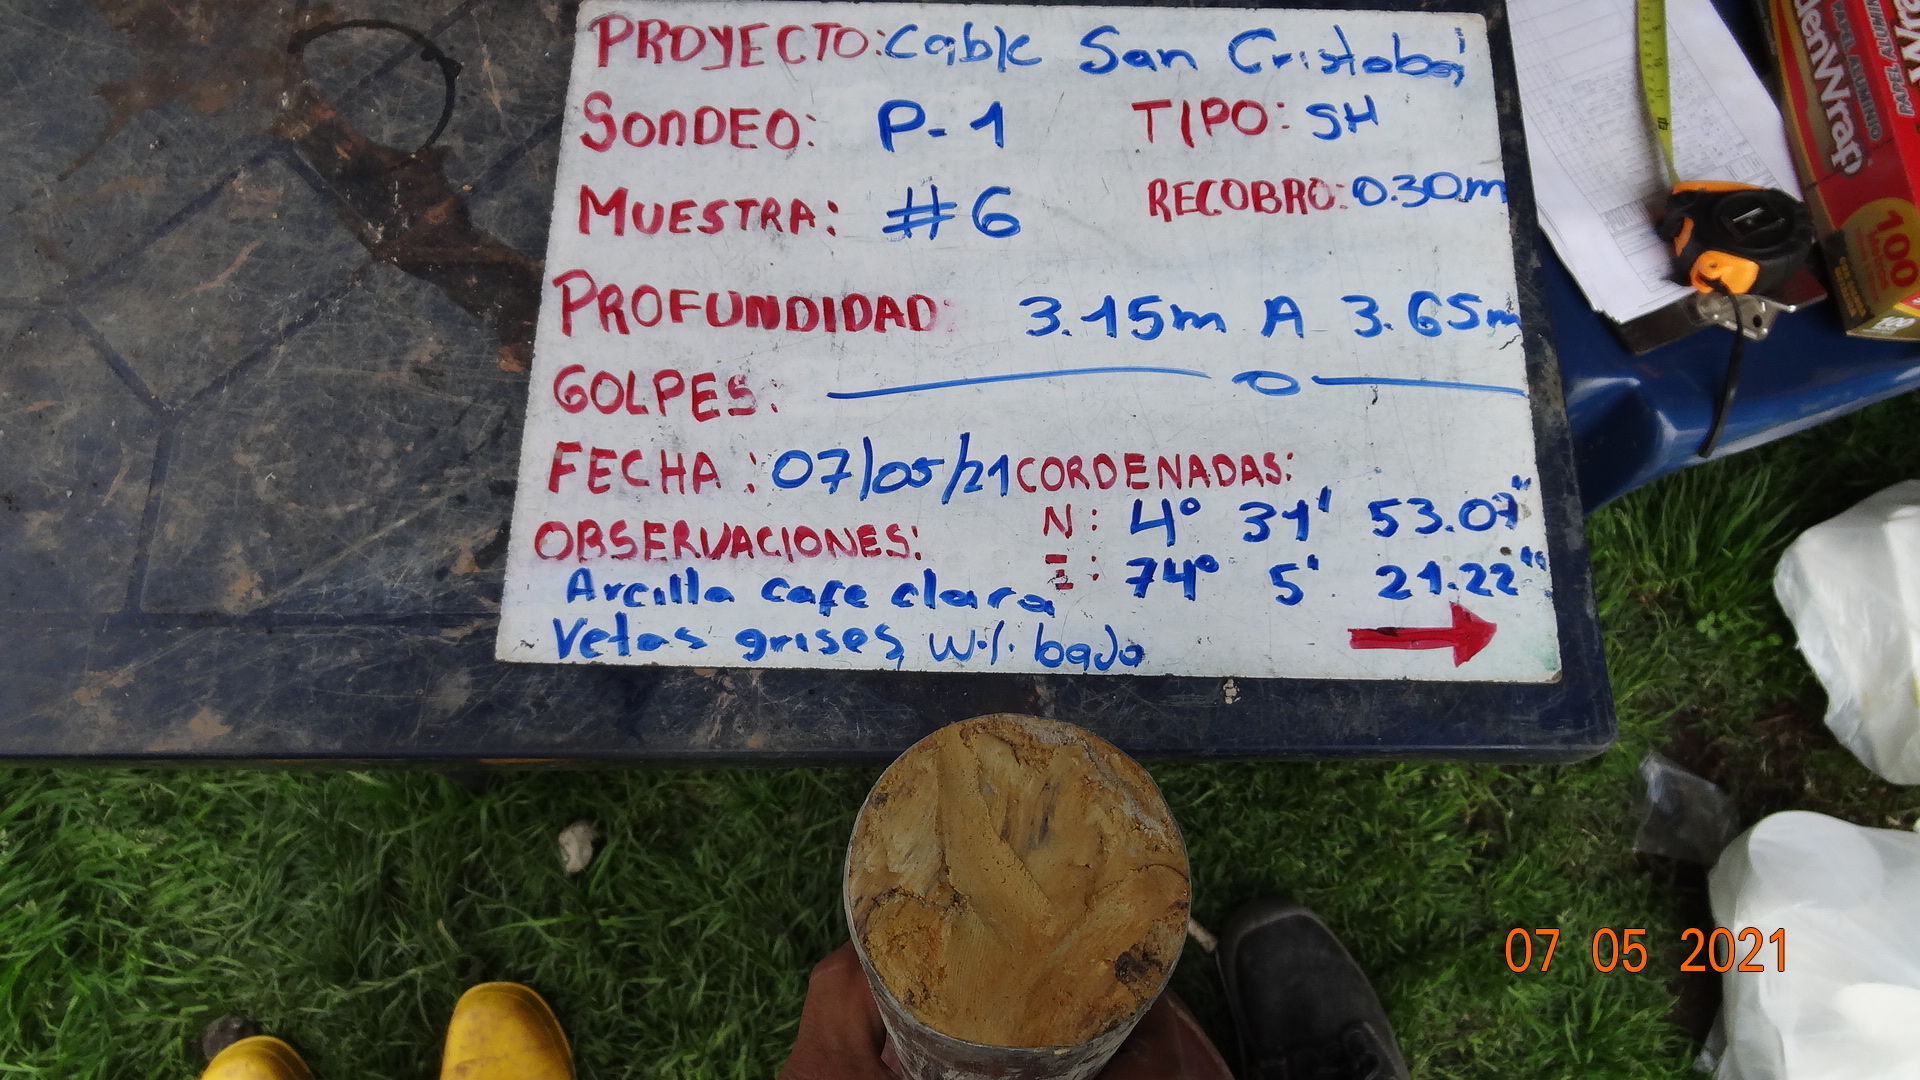 PROYECTO: Cable San Cristobal
SONDEO: P-1 TIPO: SH
MUESTRA: #6 RECOBRO: 0.30m
PROFUNDIDAD: 3.15m A 3.65m
GOLPES: —— 0 ——
FECHA: 07/05/21 CORDENADAS:
N: 4° 31' 53.07"
OBSERVACIONES:
E: 74° 5' 21.22"
Arcilla cafe clara
Vetas grises, w.%. bajo
PAPEL ALUMINIO
denWrap
100
07 05 2021